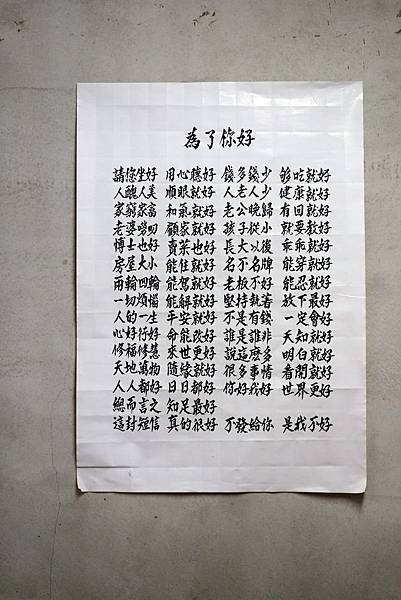 為了你好
請您坐好 用心聽好 錢多錢少 够吃就好
人醜人美 順眼就好 人老人少 健康就好
家窮家富 和氣就好 老公晚歸 有回就好
老婆嘮叨 顧家就好 孩子從小 就要教好
博士也好 賣菜也好 長大以後 乖乖就好
房屋大小 能住就好 名不名牌 能穿就好
兩輪四輪 能駕就好 老板不好 能忍就好
一切煩惱 能解就好 堅持執著 放下最好
人的一生 平安就好 不是有錢 一定會好
心好行好 命能改好 誰是誰非 天知就好
修福修慧 來世更好 說這麼多 明白就好
天地萬物 隨緣就好 很多事情 看開就好
人人都好 日日都好 你好我好 世界更好
總而言之 知足最好
這封短信 真的很好 不發給你 是我不好